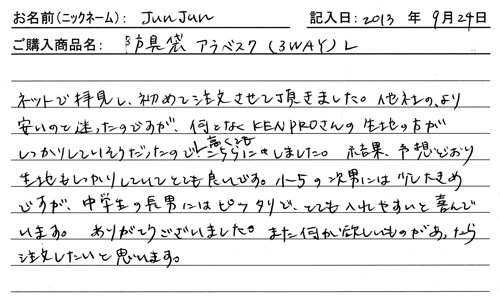 お名前(ニックネーム): JunJun 記入日: 2013 年 9月24日
ご購入商品名: 防具袋 アラベスク (3WAY) L
ネットで拝見し、初めて注文させて頂きました。他社の、より
安いのと迷ったのですが、何となくKENPROさんの生地の方が
しっかりしていそうだったので、高くてもこちらにしました。 結果、予想どおり
生地もしっかりしていてとても良いです。小5の次男には少し大きめ
ですが、中学生の長男にはピッタリで、とても入れやすいと喜んで
います。 ありがとうございました。また何か欲しいものがあったら
注文したいと思います。